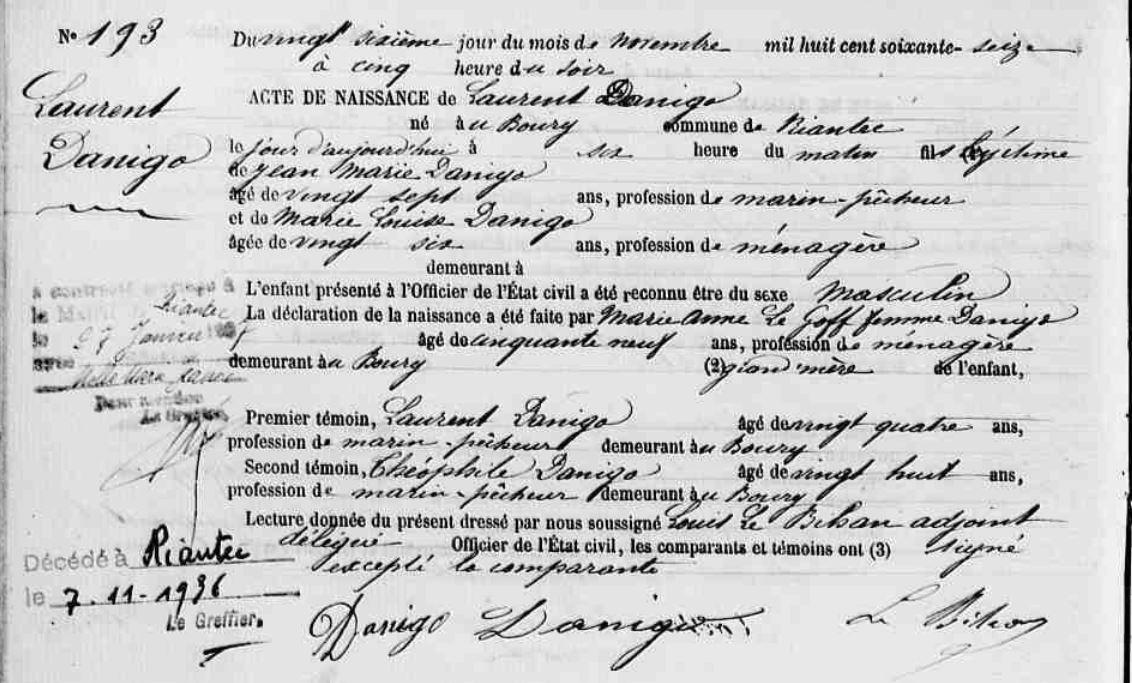 N° 193
Du vingt sixième jour du mois de novembre mil huit cent soixante-seize
à cinq heure du soir
Laurent
Danigo
ACTE DE NAISSANCE de Laurent Danigo
né à u Bourg commune de Riantec
le jour d'aujourd'hui à six heure du matin fils légitime
de Jean Marie Danigo
âgé de vingt sept ans, profession de marin-pêcheur
et de Marie Louise Danigo
âgée de vingt six ans, profession de ménagère
demeurant à
L'enfant présenté à l'Officier de l'État civil a été reconnu être du sexe masculin
La déclaration de la naissance a été faite par Marie Anne Le Goff femme Danigo
âgé de cinquante neuf ans, profession de ménagère
demeurant à u Bourg (2) grand'mère de l'enfant,
à contracté mariage à
Riantec
le 27 Janvier
avec
Pour mention
Le Greffier,
Premier témoin, Laurent Danigo âgé de vingt quatre ans,
profession de marin-pêcheur demeurant à u Bourg
Second témoin, Théophile Danigo âgé de vingt huit ans,
profession de marin-pêcheur demeurant à u Bourg
Lecture donnée du présent dressé par nous soussigné Louis Le Bihan adjoint
délégué Officier de l'État civil, les comparants et témoins ont (3) signé
excepté la comparante
Décédé à Riantec
le 7-11-1936
Le Greffier.
Danigo Danigo Le Bihan